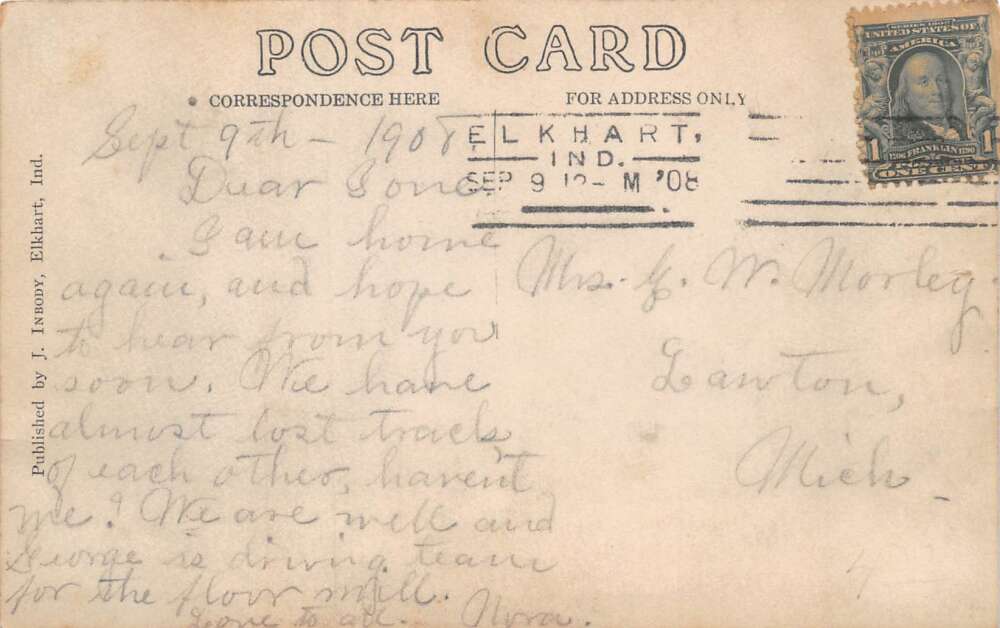 POST CARD
CORRESPONDENCE HERE
FOR ADDRESS ONLY
SERIES 1902
UNITED STATES OF
AMERICA
1 1706 FRANKLIN 1790 1
ONE CENT
ELKHART,
IND.
SEP 9 12- M '08
Published by J. INBODY, Elkhart, Ind.
Sept 9th - 1908
Dear Ione
I am home
again, and hope
to hear from you
soon. We have
almost lost track
of each other, haven't
we? We are well and
George is driving team
for the floor mill.
Love to all. Nora.
Mrs. G. W. Morley
Lawton,
Mich